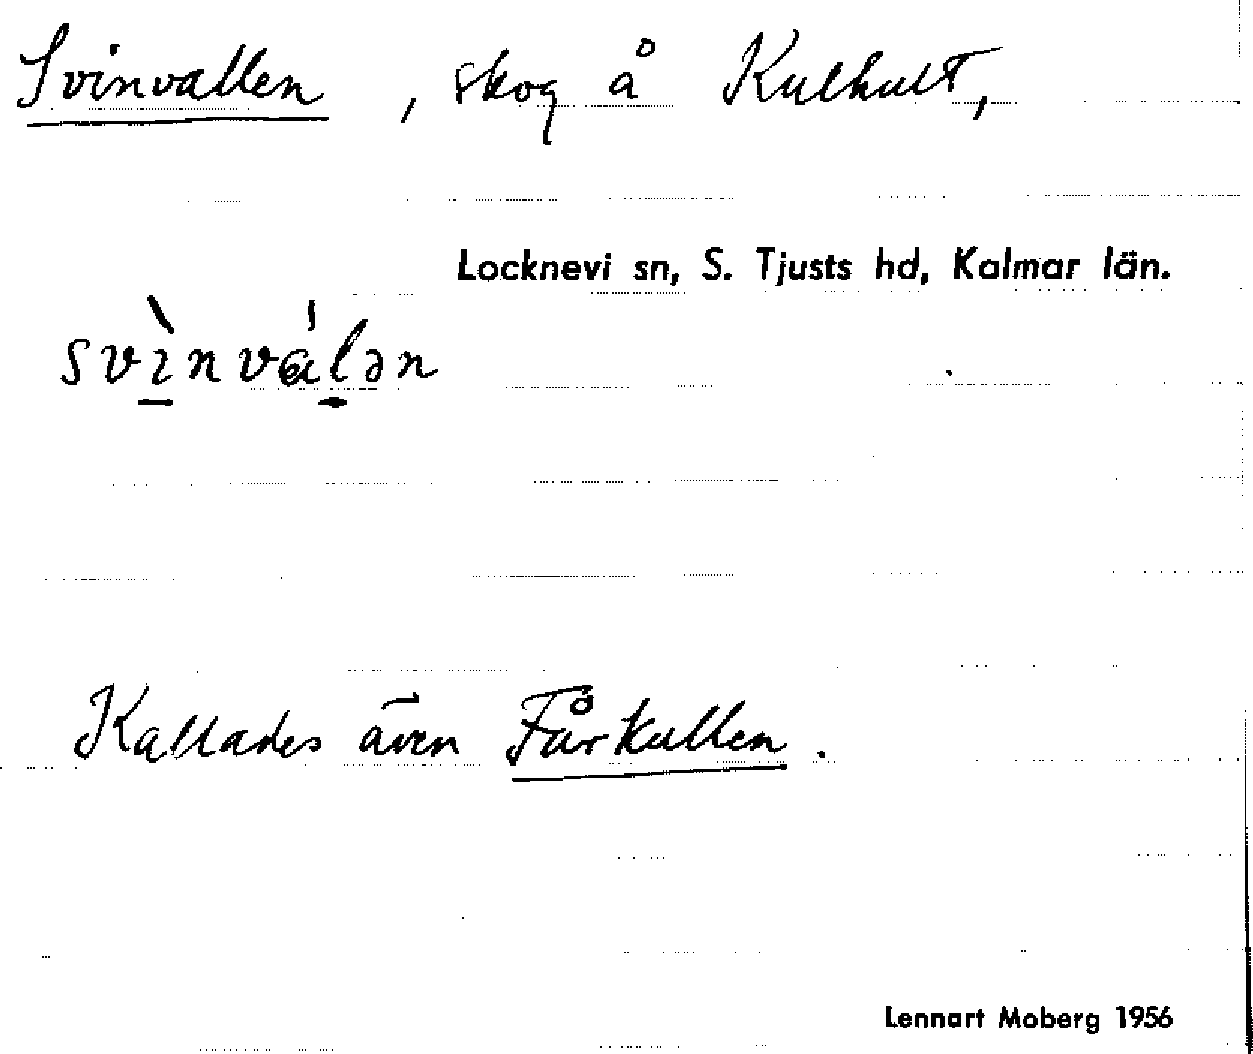 Svinvallen, skog å Kulhult,
Locknevi sn, S. Tjusts hd, Kalmar län.
svı̀nválən
Kallades även Fårkullen.
Lennart Moberg 1956